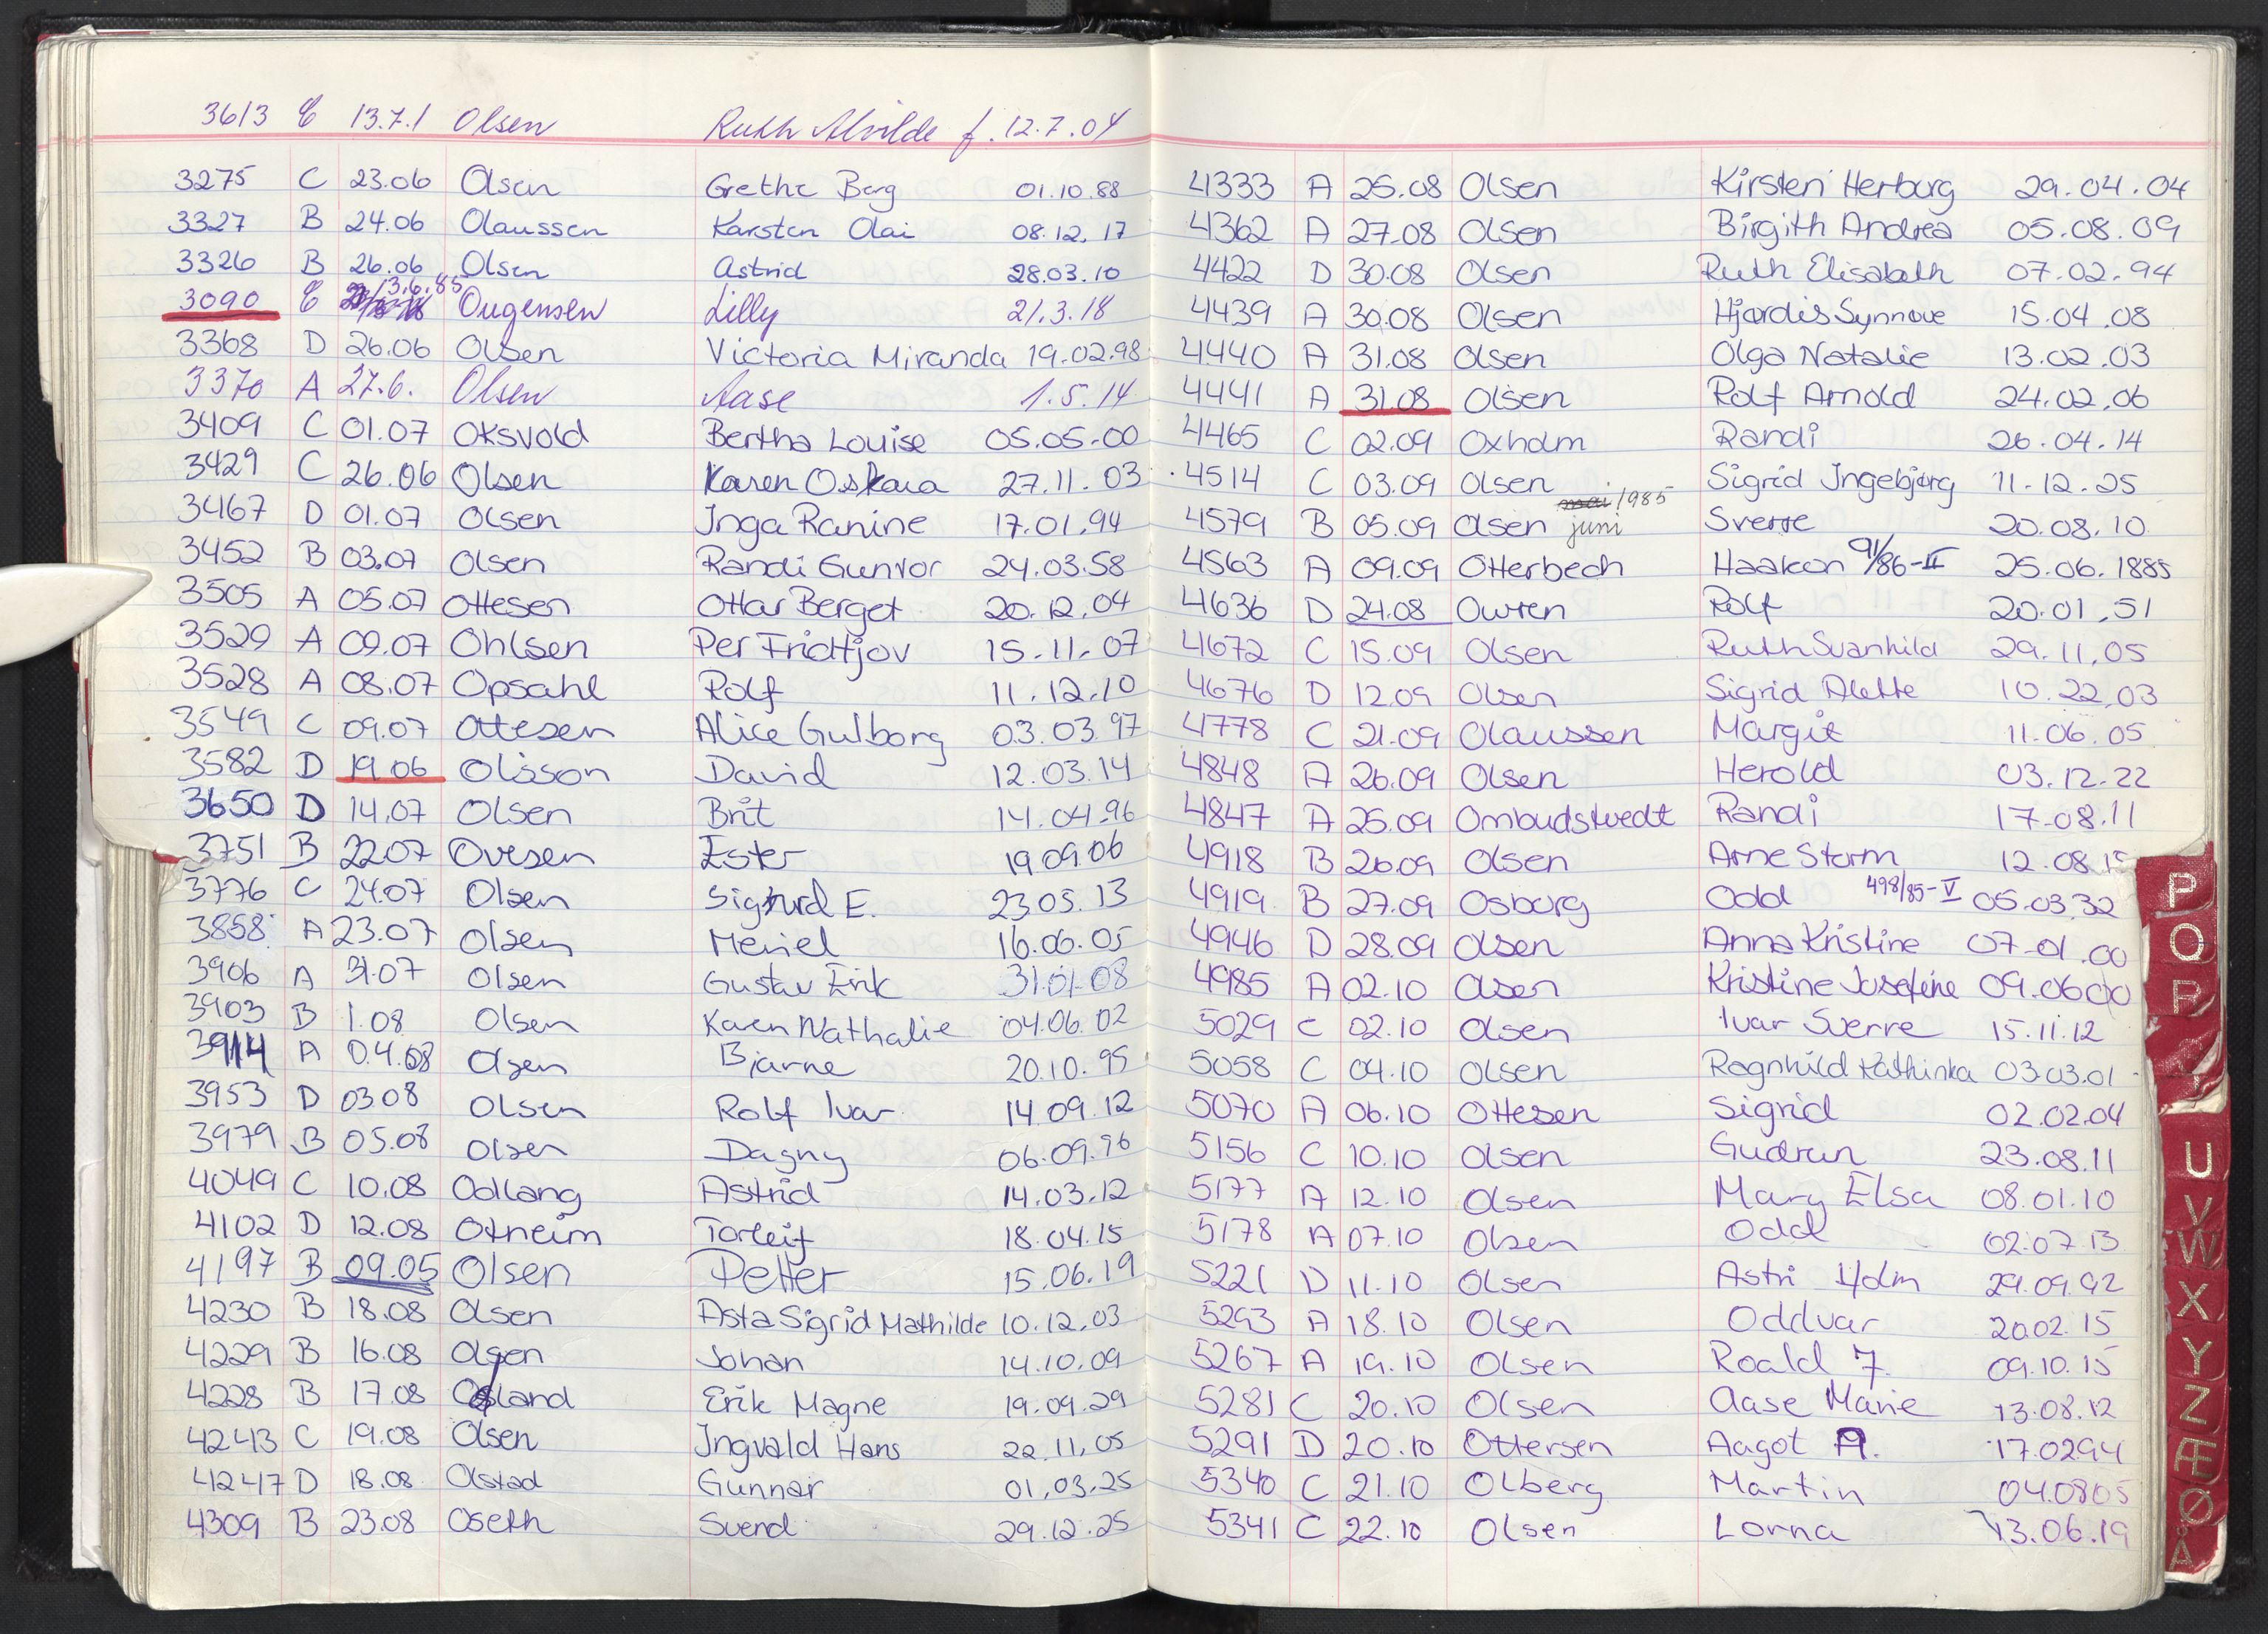 3613 E 13.7.1 Olsen Ruth Alvilde f. 12.7.04
3275 C 23.06 Olsen Grethe Berg 01.10.88
3327 B 24.06 Olaussen Karsten Olai 08.12.17
3326 B 26.06 Olsen Astrid 28.03.10
3090 E 13.6.85 Ougensen Lilly 21.3.18
3368 D 26.06 Olsen Victoria Miranda 19.02.98
3370 A 27.6. Olsen Aase 1.5.14
3409 C 01.07 Oksvold Bertha Louise 05.05-00
3429 C 26.06 Olsen Karen Oskara 27.11.03
3467 D 01.07 Olsen Inga Ranine 17.01.94
3452 B 03.07 Olsen Randi Gunvor 24.03.58
3505 A 05.07 Ottesen Ottar Berget 20.12.04
3529 A 09.07 Ohlsen Per Fridtjov 15.11.07
3528 A 08.07 Opsahl Rolf 11.12.10
3549 C 09.07 Ottesen Alice Gulborg 03.03.97
3582 D 19.06 Olsson David 12.03.14
3650 D 14.07 Olsen Brit 14.04.96
3751 B 22.07 Ovesen Ester 19.09.06
3776 C 24.07 Olsen Sigurd E. 23.05.13
3858 A 23.07 Olsen Meriel 16.06.05
3906 A 31.07 Olsen Gustav Erik 31.01.08
3903 B 1.08 Olsen Karen Nathalie 04.06.02
3914 A 04.08 Olsen Bjarne 20.10.95
3953 D 03.08 Olsen Rolf Ivar 14.09.12
3979 B 05.08 Olsen Dagny 06.09.96
4049 C 10.08 Odlang Astrid 14.03.12
4102 D 12.08 Otneim Torleif 18.04.15
4197 B 09.05 Olsen Petter 15.06.19
4230 B 18.08 Olsen Asta Sigrid Mathilde 10.12.03
4229 B 16.08 Olsen Johan 14.10.09
4228 B 17.08 Osland Erik Magne 19.09.29
4243 C 19.08 Olsen Ingvald Hans 22.11.05
4247 D 18.08 Olstad Gunnar 01.03.25
4309 B 23.08 Oseth Svend 29.12.25
4333 A 25.08 Olsen Kirsten Herburg 29.04.04
4362 A 27.08 Olsen Birgith Andrea 05.08.09
4422 D 30.08 Olsen Ruth Elisabeth 07.02.94
4439 A 30.08 Olsen Hjørdis Synnøve 15.04.08
4440 A 31.08 Olsen Olga Natalie 13.02.03
4441 A 31.08 Olsen Rolf Arnold 24.02.06
4465 C 02.09 Oxholm Randi 26.04.14
4514 C 03.09 Olsen Sigrid Ingebjørg 11.12.25
mai / 1985
4579 B 05.09 Olsen juni Sverre 20.08.10
4563 A 09.09 Otterbech Haakon 91/86-II 25.06.1885
4636 D 24.08 Owren Rolf 20.01.51
4672 C 15.09 Olsen Ruth Svanhild 29.11.05
4676 D 12.09 Olsen Sigrid Alette 10.22.03
4778 C 21.09 Olaussen Margit 11.06.05
4848 A 26.09 Olsen Herold 03.12.22
4847 A 25.09 Ombudstvedt Randi 17.08.11
4918 B 26.09 Olsen Arne Storm 12.08.15
4919 B 27.09 Osborg Odd 498/85-V 05.03.32
4946 D 28.09 Olsen Anna Kristine 07-01.00
4985 A 02.10 Olsen Kristine Josefine 09.06.00
5029 C 02.10 Olsen Ivar Sverre 15.11.12
5058 C 04.10 Olsen Ragnhild Kathinka 03.03.01
5070 A 06.10 Ottesen Sigrid 02.02.04
5156 C 10.10 Olsen Gudrun 23.08.11
5177 A 12.10 Olsen Mary Elsa 08.01.10
5178 A 07.10 Olsen Odd 02.07.13
5221 D 11.10 Olsen Astri Holm 29.09.92
5293 A 18.10 Olsen Oddvar 20.02.15
5267 A 19.10 Olsen Roald 7. 09.10.15
5281 C 20.10 Olsen Aase Marie 13.08.12
5291 D 20.10 Ottersen Aagot A. 17.0294
5340 C 21.10 Olberg Martin 04.0805
5341 C 22.10 Olsen Lorna 13.06.19
P
Q
R
U
V
W
X
Y
Z
Æ
Ø
Å